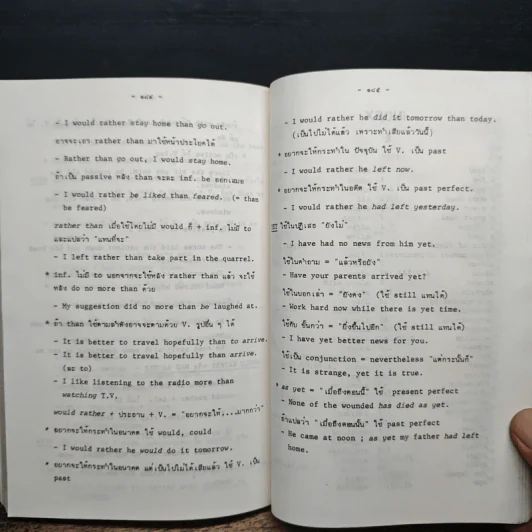 - ๑๘๔ -
- I would rather stay home than go out.
อาจจะเอา rather than มาใช้หน้าประโยคได้
- Rather than go out, I would stay home.
ถ้าเป็น passive หลัง than จะละ inf. be ออกเสมอ
- I would rather be liked than feared. (= than
be feared)
rather than เมื่อใช้โดยไม่มี would ก็ + inf. ไม่มี to
และแปลว่า "แทนที่จะ"
- I left rather than take part in the quarrel.
* inf. ไม่มี to นอกจากจะใช้หลัง rather than แล้ว จะใช้
หลัง do no more than ด้วย
- My suggestion did no more than be laughed at.
* ถ้า than ใช้ตามลำพังอาจจะตามด้วย V. รูปอื่น ๆ ได้
- It is better to travel hopefully than to arrive.
- It is better to travel hopefully than arrive.
(ละ to)
- I like listening to the radio more than
watching T.V.
would rather + ประธาน + V. = "อยากจะให้,...มากกว่า"
* อยากจะให้กระทำในอนาคต ใช้ would, could
- I would rather he would do it tomorrow.
* อยากจะให้กระทำในอนาคต แต่เป็นไปไม่ได้เสียแล้ว ใช้ V. เป็น
past
- ๑๘๕ -
- I would rather he did it tomorrow than today.
(เป็นไปไม่ได้แล้ว เพราะทำเสียแล้ววันนี้)
* อยากจะให้กระทำใน ปัจจุบัน ใช้ V. เป็น past
- I would rather he left now.
* อยากจะให้กระทำในอดีต ใช้ V. เป็น past perfect.
- I would rather he had left yesterday.
ใช้ในปฏิเสธ "ยังไม่"
- I have had no news from him yet.
ใช้ในคำถาม = "แล้วหรือยัง"
- Have your parents arrived yet?
ใช้ในบอกเล่า = "ยังคง" (ใช้ still แทนได้)
- Work hard now while there is yet time.
ใช้กับ ขั้นกว่า = "ยิ่งขึ้นไปอีก" (ใช้ still แทนได้)
- I have yet better news for you.
ใช้เป็น conjunction = nevertheless "แต่กระนั้นก็"
- It is strange, yet it is true.
* as yet = "เมื่อถึงตอนนี้" ใช้ present perfect
- None of the wounded has died as yet.
ถ้าแปลว่า "เมื่อถึงตอนนั้น" ใช้ past perfect
- He came at noon ; as yet my father had left
home.